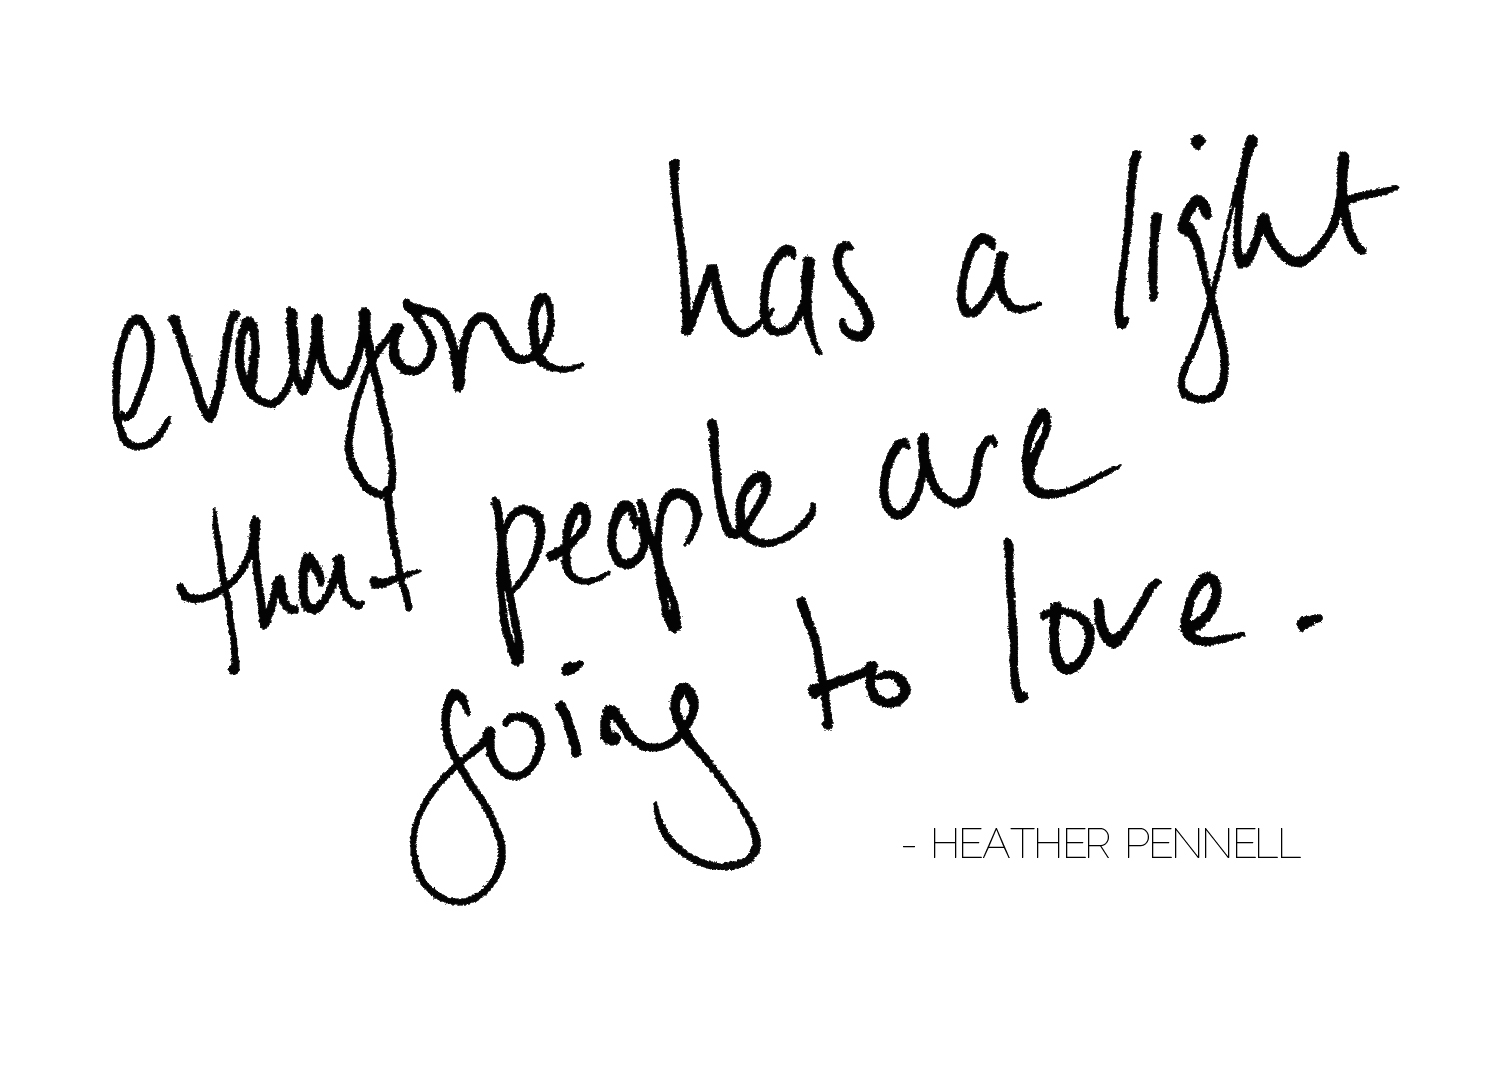 everyone has a light
that people are
going to love.
- HEATHER PENNELL